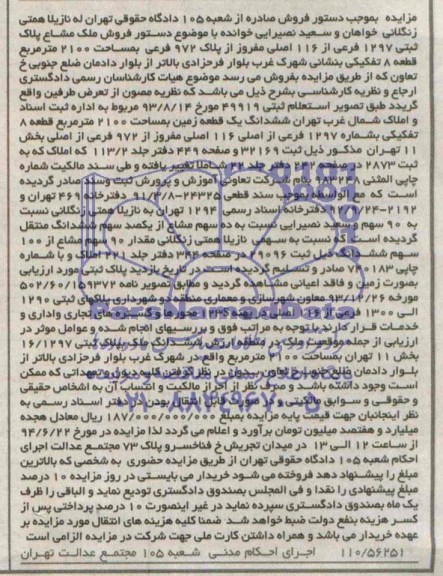 مزایده بموجب دستور فروش صادره از شعبه ۱۰۵ دادگاه حقوقی تهران له نازیلا همتی
زنگلانی خواهان و سعید نصیرایی خوانده با موضوع دستور فروش ملک مشاع پلاک
ثبتی ۱۲۹۷ فرعی از ۱۱۶ اصلی مفروز از پلاک ۹۷۲ فرعی بمساحت ۲۱۰۰ مترمربع
قطعه ۸ تفکیکی بنشانی شهرک غرب بلوار فرحزادی بالاتر از بلوار دادمان ضلع جنوبی خ
تعاون که از طریق مزایده بفروش می رسد موضوع هیات کارشناسان رسمی دادگستری
ارجاع و نظریه کارشناسی بشرح ذیل می باشد که نظریه مصون از تعرض طرفین واقع
گردد طبق تصویر استعلام ثبتی ۴۹۹۱۹ مورخ ۹۳/۸/۱۴ مربوط به اداره ثبت اسناد
و املاک شمال غرب تهران ششدانگ یک قطعه زمین بمساحت ۲۱۰۰ مترمربع قطعه ۸
تفکیکی بشماره ۱۲۹۷ فرعی از اصلی ۱۱۶ اصلی مفروز از ۹۷۲ فرعی از اصلی بخش
۱۱ تهران مذکور ذیل ثبت ۳۲۱۶۹ و صفحه ۴۴۹ دفتر جلد ۱۱۳/۲ املاک که به
ثبت ۲۸۷۳ صفحه ۲۴۲ دفتر جلد ۲۲ تغییر یافته و طی سند مالکیت شماره
چاپی المثنی بنام شرکت تعاونی آموزش و پرورش ثبت وسند صادر گردیده
است که مع الواسطه بموجب سند قطعی ۲۴۳۲۵ دفترخانه ۴۶۹ تهران و
۲۱۹۲ دفترخانه اسناد رسمی ۱۲۹۴ تهران به نازیلا همتی زنگلانی نسبت
به ۹۰ سهم و سعید نصیرایی نسبت به ده سهم مشاع از یکصد سهم ششدانگ منتقل
گردیده است که نسبت به سهم نازیلا همتی زنگلانی مقدار ۹۰ سهم مشاع از ۱۰۰
سهم ششدانگ ذیل ثبت در صفحه دفتر جلد املاک و با شماره
چاپی صادر و تسلیم گردیده است در تاریخ بازدید پلاک ثبتی مورد ارزیابی
بصورت زمین و فاقد اعیانی مشاهده گردید و مطابق تصویر نامه ۵۰۲/۶۰/۱۵۹۳۷۲
مورخه ۹۲/۱۲/۲۶ معاون شهرسازی و معماری منطقه دو شهرداری پلاکهای ثبتی ۱۲۹۰
الی ۱۳۰۰ فرعی از ۱۱۶ اصلی در پهنه محور و گستره های تجاری واداری و
خدمات قرار دارند با توجه به مراتب فوق و بررسیهای انجام شده و عوامل موثر در
ارزیابی از جمله موقعیت ملک در منطقه ارزش ششدانگ ملک پلاک ثبتی ۱۶/۱۲۹۷
بخش ۱۱ تهران بمساحت ۲۱۰۰ مترمربع واقع در شهرک غرب بلوار فرحزادی بالاتر از
بلوار دادمان ضلع جنوبی خ تعاون بدون در نظر گرفتن کلیه دیون و تعهداتی که ممکن
است وجود داشته باشد و صرف نظر از احراز مالکیت و انتساب آن به اشخاص حقیقی
و حقوقی و سوابق مالکیتی و در صورت قابل انتقال بودن در دفتر اسناد رسمی به
نظر اینجانبان جهت قیمت پایه مزایده بمبلغ ۱۸۷/۰۰۰/۰۰۰/۰۰۰ ریال معادل هجده
میلیارد و هفتصد میلیون تومان برآورد و اعلام می گردد لذا مزایده در مورخ ۹۴/۶/۲۲
از ساعت ۱۲ الی ۱۳ در میدان تجریش خ فناخسرو پلاک ۷۳ مجتمع عدالت اجرای
احکام شعبه ۱۰۵ دادگاه حقوقی تهران از طریق مزایده حضوری به شخصی که بالاترین
مبلغ را پیشنهاد دهد فروخته می شود خریدار می بایستی در روز مزایده ۱۰ درصد
مبلغ پیشنهادی را نقدا و فی المجلس بصندوق دادگستری تودیع نماید و الباقی را ظرف
یک ماه بصندوق دادگستری سپرده نماید در غیر اینصورت ۱۰ درصد پرداختی پس از
کسر هزینه بنفع دولت ضبط خواهد شد ضمنا کلیه هزینه های انتقال مورد مزایده بر
عهده خریدار می باشد و همراه داشتن کارت ملی جهت شرکت در مزایده الزامی است
۱۱۰/۵۶۲۵۱ اجرای احکام مدنی شعبه ۱۰۵ مجتمع عدالت تهران